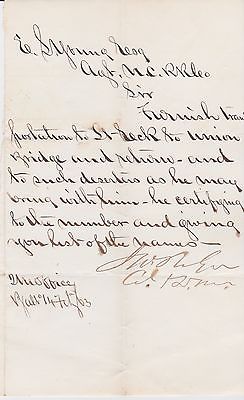 E. S. Young Esq
Agt. N.C. RR Co
Sir
Furnish trans
portation to to Union
Bridge and return - and
to such deserters as he may
bring with him - he certifying
to the number and giving
you list of the names -
Col
QMs Office
14 Feby 63